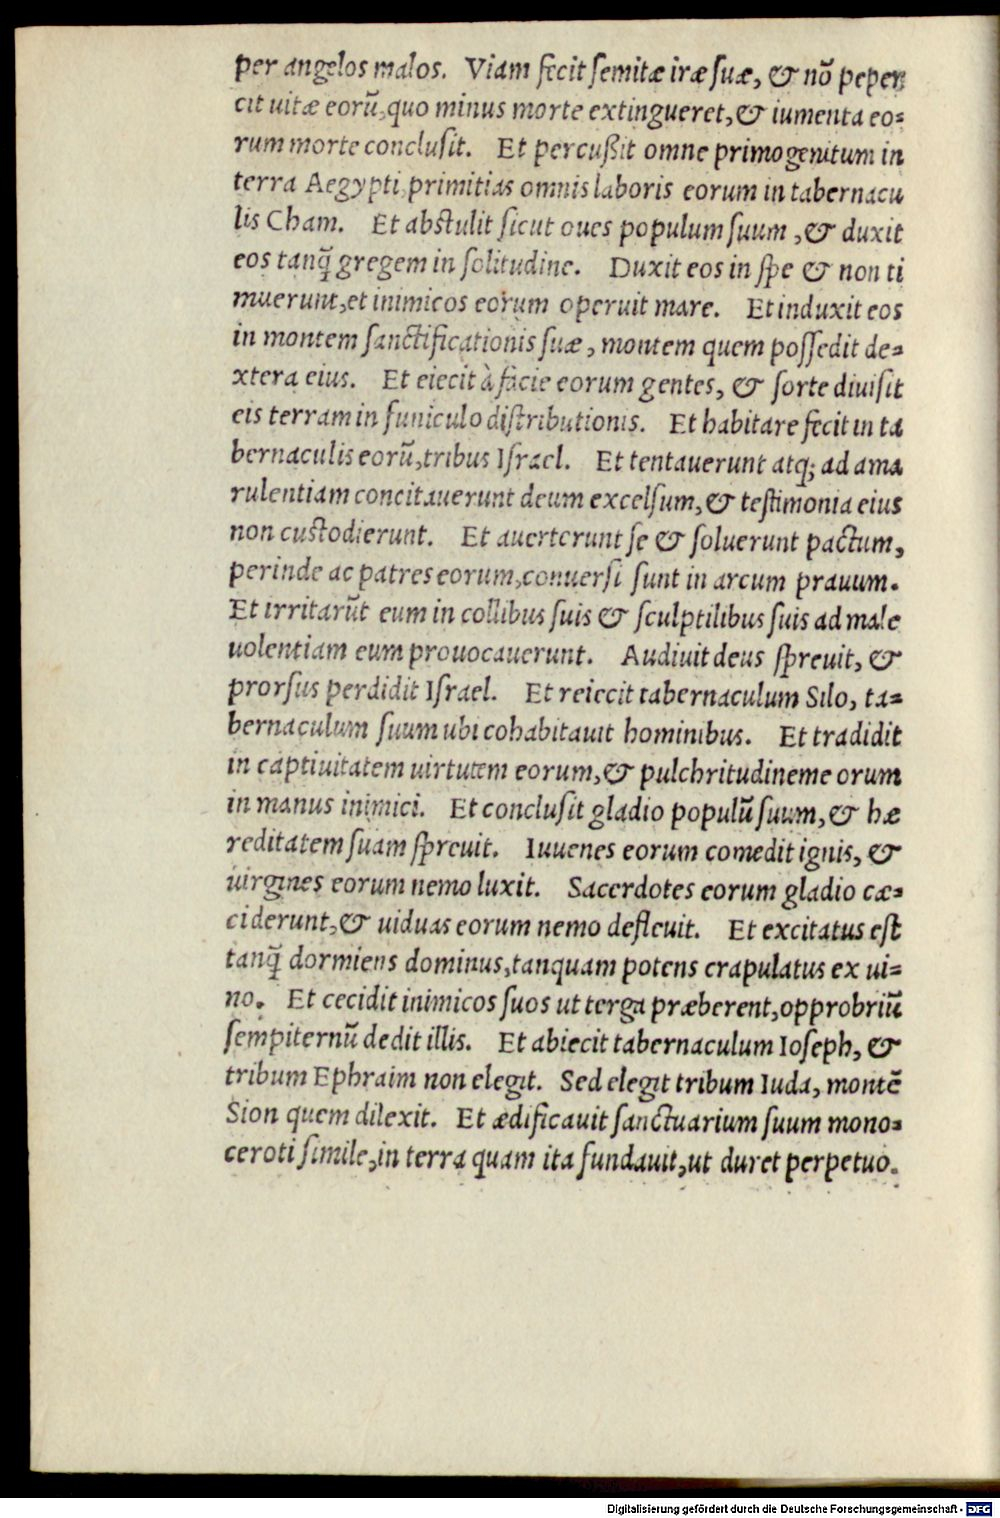 per angelos malos. Viam fecit semitæ iræ suæ, & nõ peper
cit uitæ eorũ, quo minus morte extingueret, & iumenta eo-
rum morte conclusit. Et percußit omne primogenitum in
terra Aegypti, primitias omnis laboris eorum in tabernacu
lis Cham. Et abstulit sicut oues populum suum, & duxit
eos tanq̃ gregem in solitudine. Duxit eos in spe & non ti
muerunt, et inimicos eorum operuit mare. Et induxit eos
in montem sanctificationis suæ, montem quem possedit de-
xtera eius. Et eiecit à facie eorum gentes, & sorte diuisit
eis terram in funiculo distributionis. Et habitare fecit in ta
bernaculis eorũ, tribus Israel. Et tentauerunt atq; ad ama
rulentiam concitauerunt deum excelsum, & testimonia eius
non custodierunt. Et auerterunt se & soluerunt pactum,
perinde ac patres eorum, conuersi sunt in arcum prauum.
Et irritarũt eum in collibus suis & sculptilibus suis ad male
uolentiam eum prouocauerunt. Audiuit deus spreuit, &
prorsus perdidit Israel. Et reiecit tabernaculum Silo, ta-
bernaculum suum ubi cohabitauit hominibus. Et tradidit
in captiuitatem uirtutem eorum, & pulchritudineme orum
in manus inimici. Et conclusit gladio populũ suum, & hæ
reditatem suam spreuit. Iuuenes eorum comedit ignis, &
uirgines eorum nemo luxit. Sacerdotes eorum gladio cæ-
ciderunt, & uiduas eorum nemo defleuit. Et excitatus est
tanq̃ dormiens dominus, tanquam potens crapulatus ex ui-
no. Et cecidit inimicos suos ut terga præberent, opprobriũ
sempiternũ dedit illis. Et abiecit tabernaculum Ioseph, &
tribum Ephraim non elegit. Sed elegit tribum Iuda, montẽ
Sion quem dilexit. Et ædificauit sanctuarium suum mono-
ceroti simile, in terra quam ita fundauit, ut duret perpetuo.
Digitalisierung gefördert durch die Deutsche Forschungsgemeinschaft - DFG